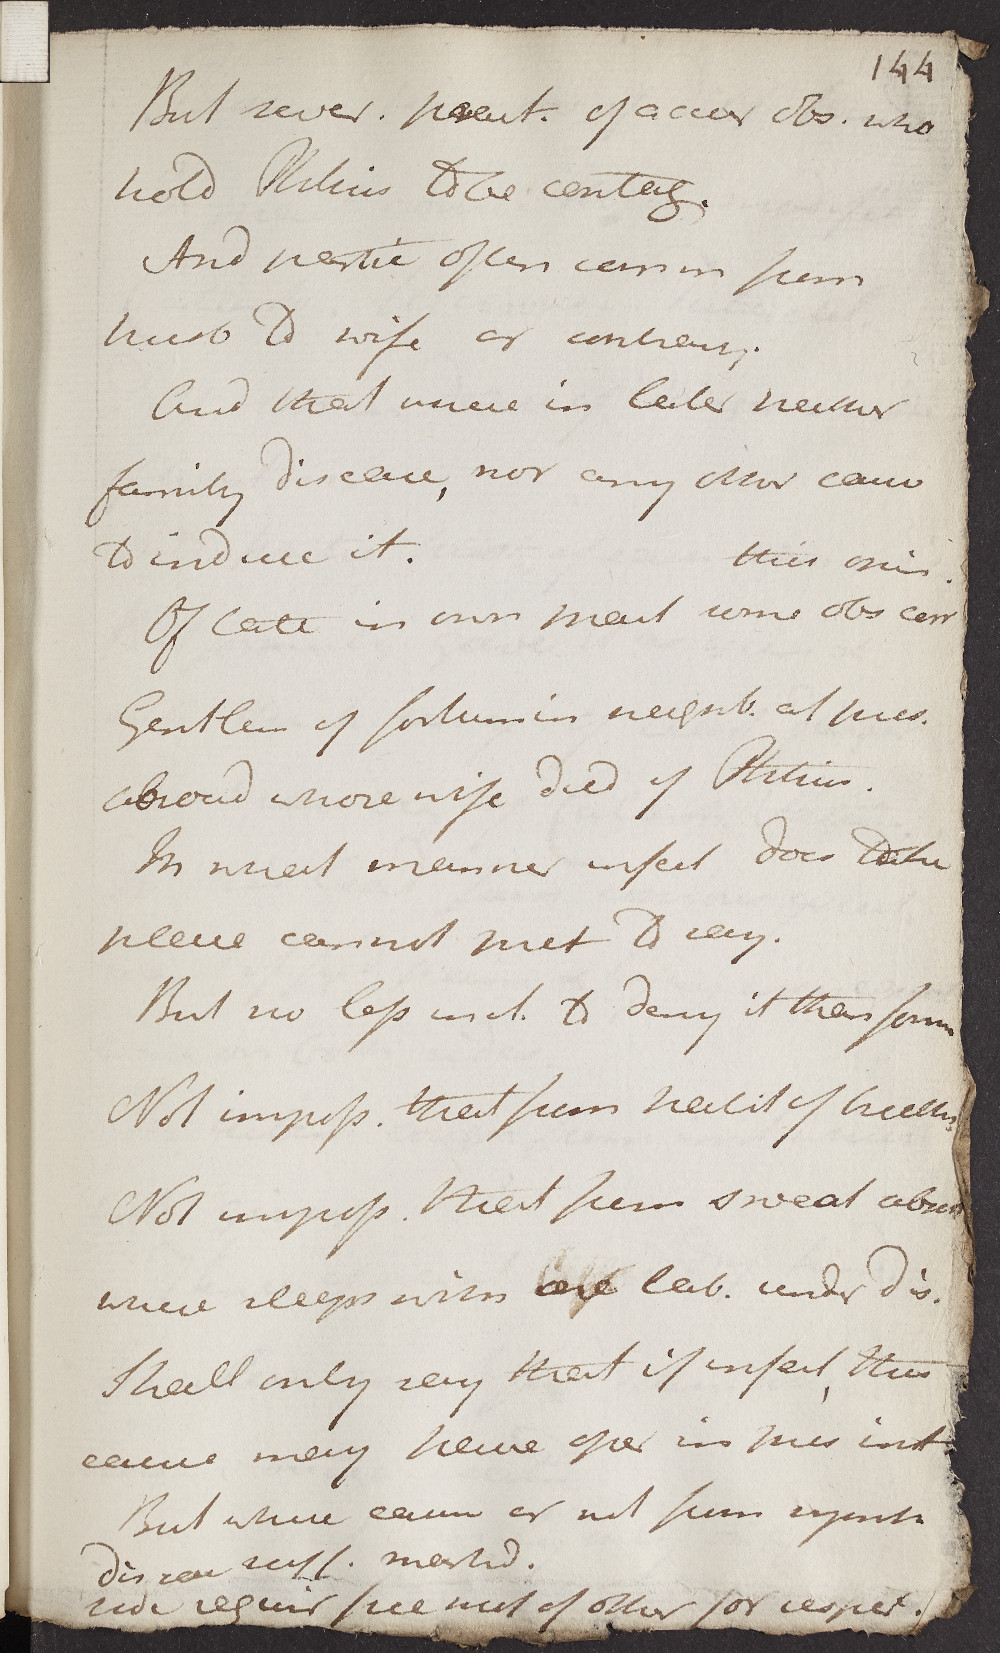 144
But sever. pract. of accur obs. who
hold Phthisis to be contag.
And partic often comm from
husb to wife or contrary.
And that where in latter neither
family disease, nor any other cause
to induce it.
this opin.
Of late in own pract some obs conf
Gentlem of fortune in neighb. at pres.
abroad whose wife died of Phthisis.
In what manner infect does take
place cannot pret to say.
But no less incl. to deny it than form
Not imposs. that from habit of breaths
Not imposs. that from sweat absor
where sleeps with one lab. under dis.
Shall only say that if infect, this
cause may have oper in pres inst
But where cause or not from sympt
disease suff. marked.
nor requir free ment of other for respect.